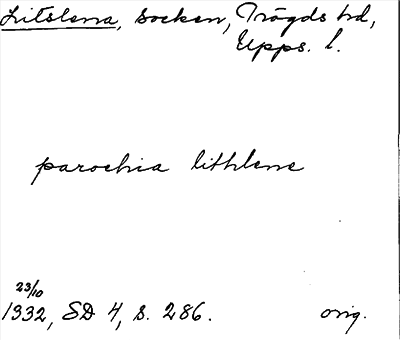 Litslena, socken, Trögds hd,
Upps. l.
parochia lithlene
23/10
1332, SD 4, s. 286. orig.